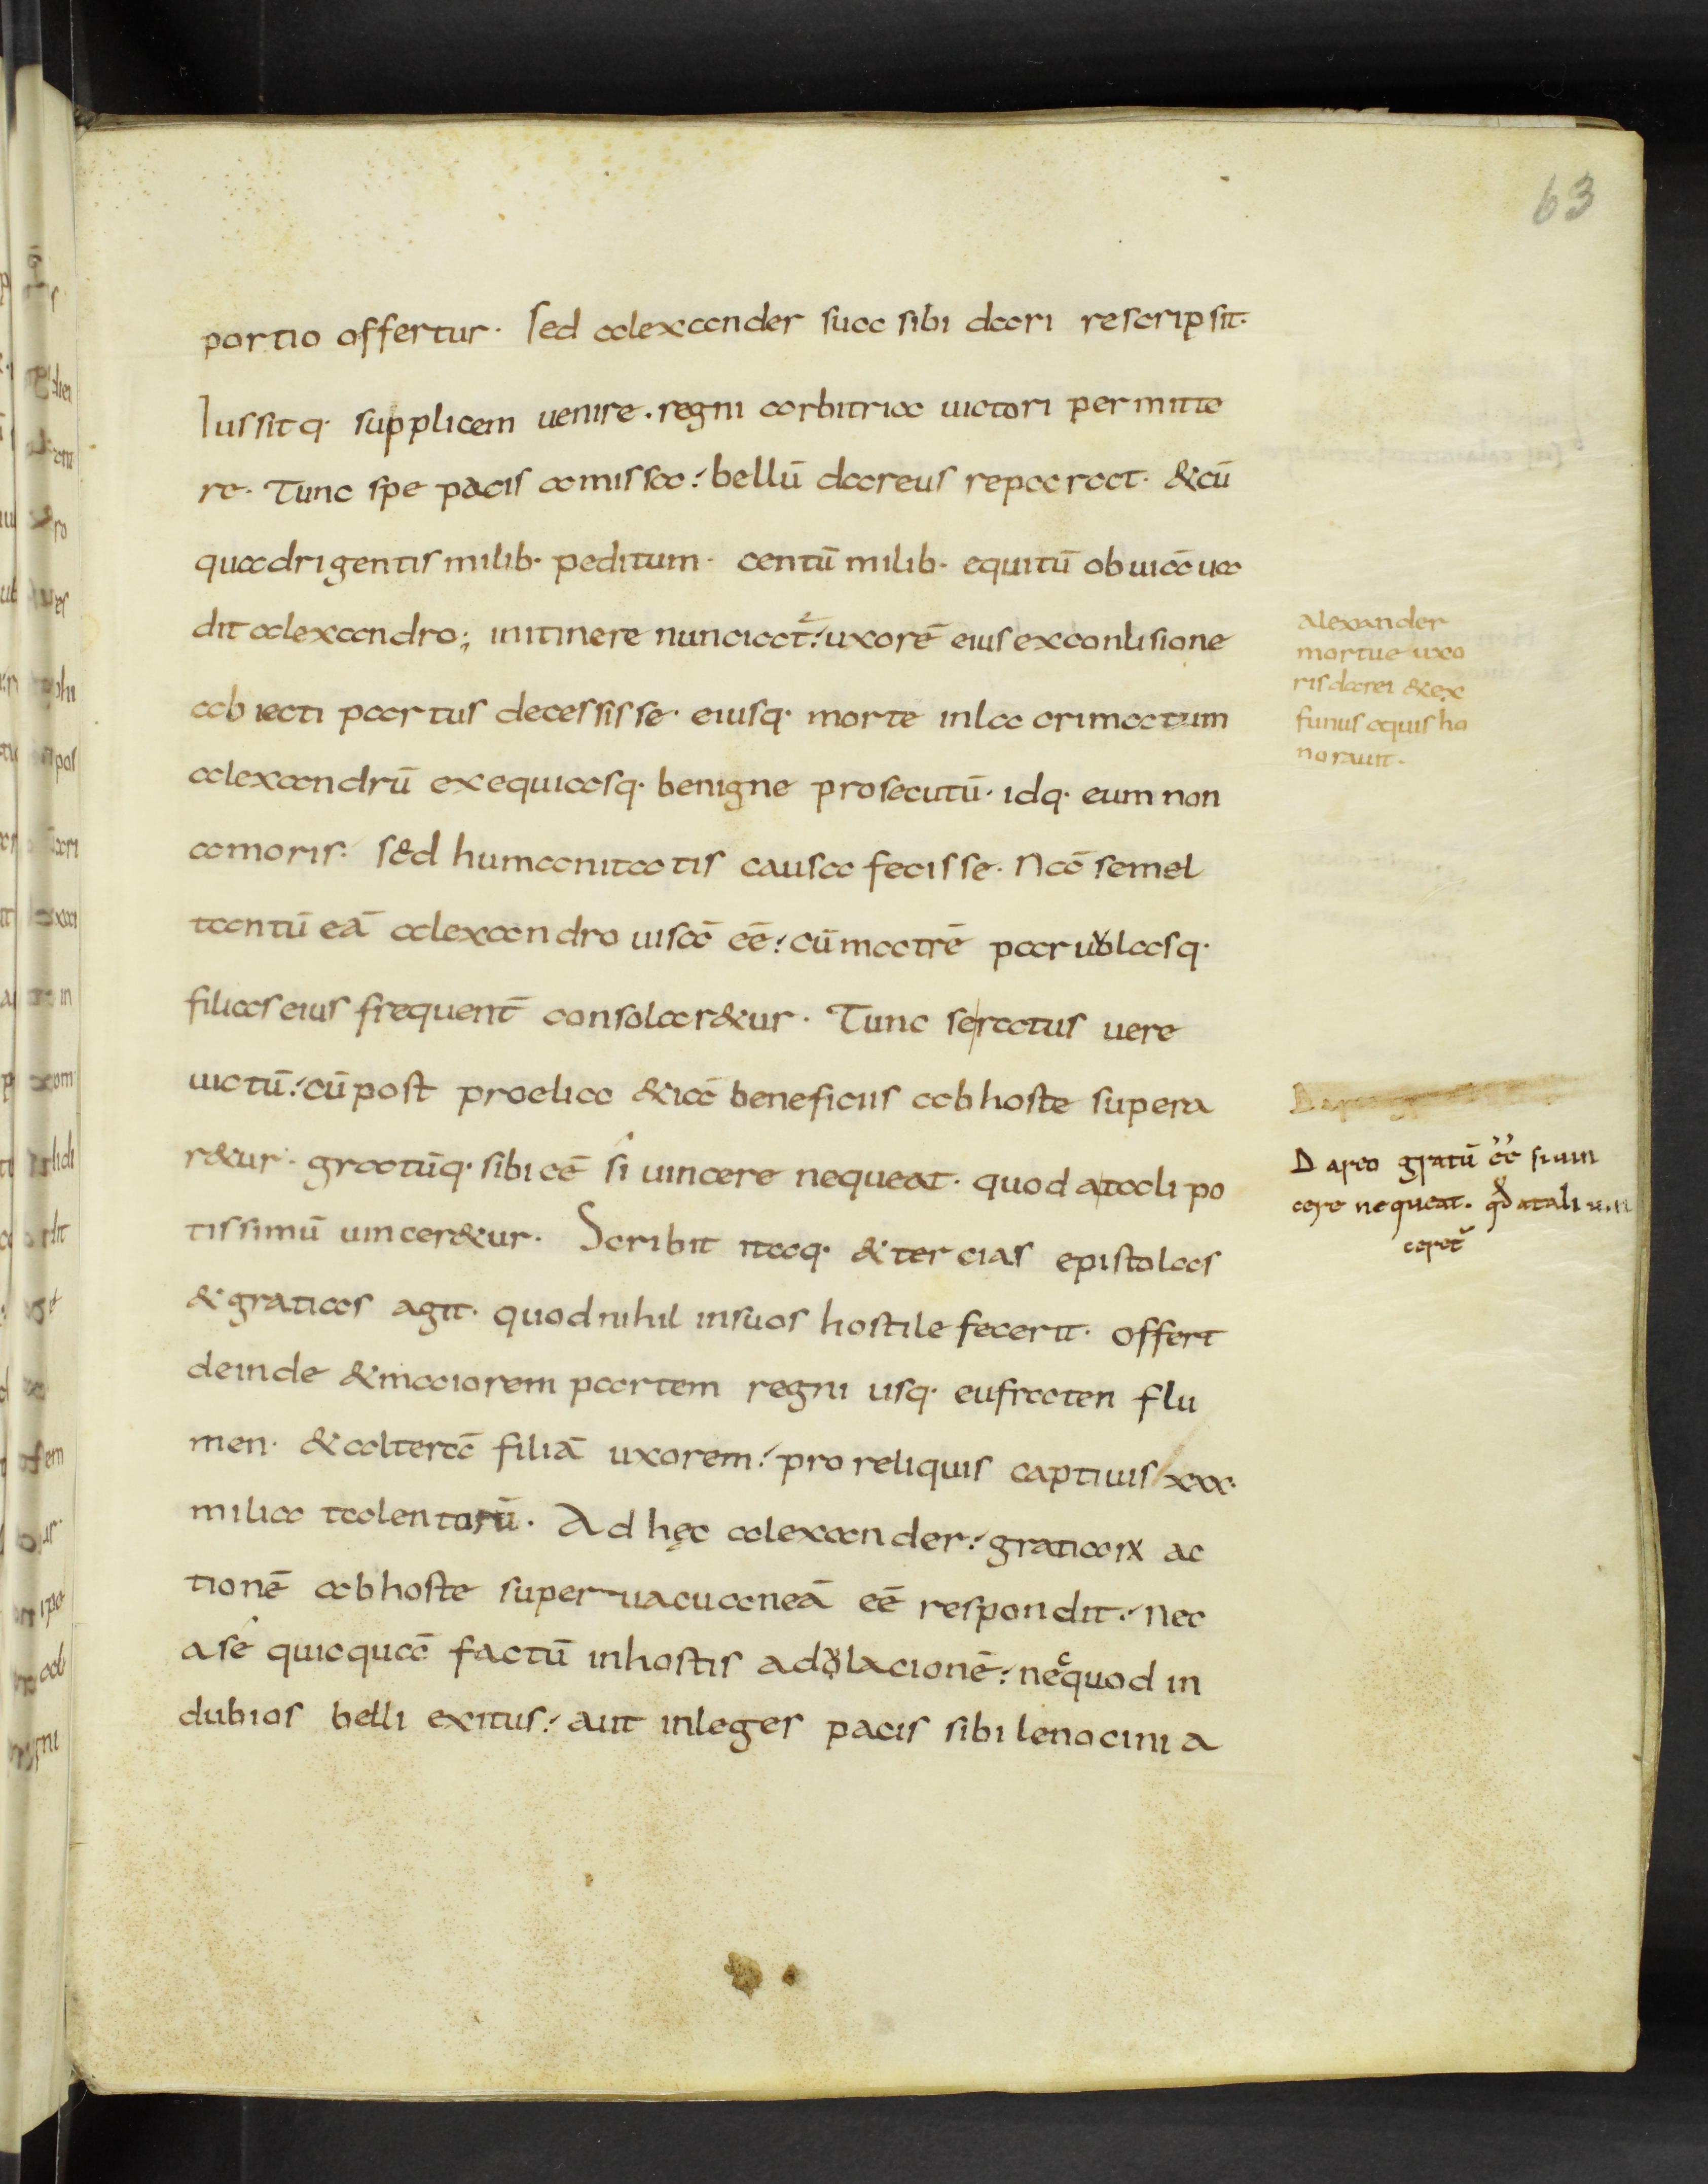 63
portio offertur. Sed alexander sua sibi dari rescripsit.
Iussitq. supplicem uenire. regni arbitria uictori permitte
re. Tunc spe pacis amissa: bellū dareus reparat. &cū
quadrigentis milib. peditum. centū milib. equitū obuiā ua
dit alexandro; initinere nunciat̄: uxorē eius exconlisione
abiecti partus decessisse. eiusq. morte inlacrimatum
alexandrū exequiasq. benigne prosecutū. idq. eum non
amoris: sed humanitatis causa fecisse. Nā semel
tantū eā alexandro uisā eē: cū matrē paruolasq.
filias eius frequent̄ consolar&ur. Tunc seratus uere
uictū: cū post proelia &iā beneficiis abhoste supera
r&ur. gratūq. sibi eē si uincere nequeat. quod atali po
tissimū uincer&ur. Scribit itaq. &tercias epistolas
&gratias agit. quod nihil insuos hostile fecerit. offert
deinde &maiorem partem regni usq. eufraten flu
men. &alterā filiā uxorem: pro reliquis captiuis xxx.
milia talentorū. Ad hęc alexander: gratiarū ac
tionē abhoste superuacuaneā eē respondit: Nec
ase quicquā factū inhostis adolacionē: nec quod in
dubios belli exitus: aut inleges pacis sibi lenocinia
alexander
mortue uxo
ris darei &ex
funus aquis ho
norauit.
Dareo gratū eē siuin
cere nequeat. qd atali uin
ceret̄